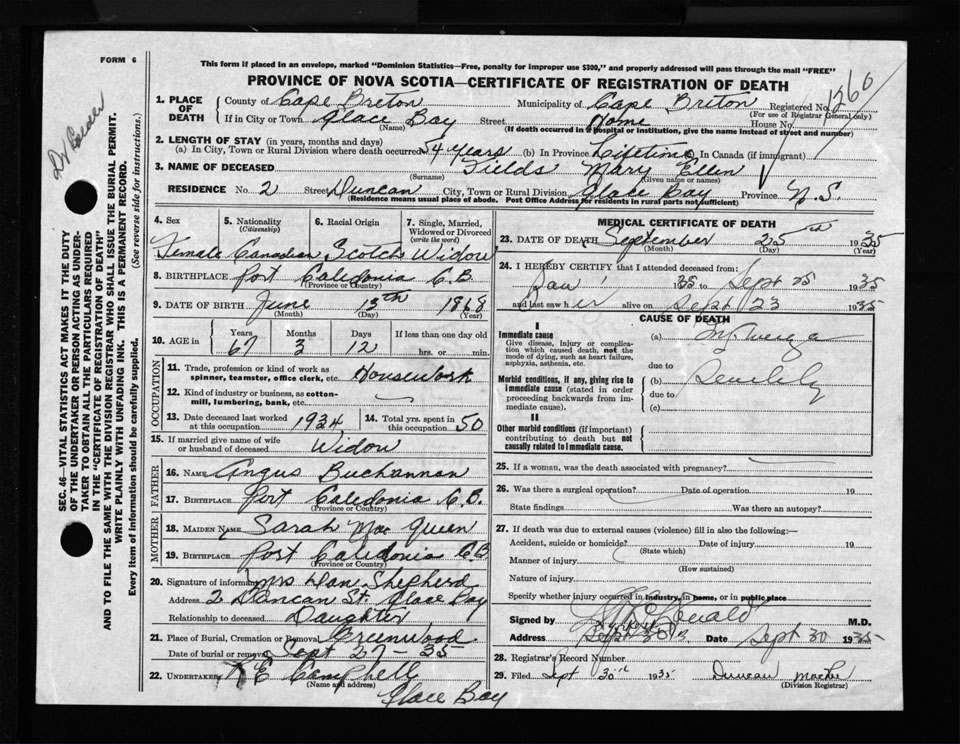 FORM 6
This form if placed in an envelope, marked "Dominion Statistics—Free, penalty for improper use $300," and properly addressed will pass through the mail "FREE"
PROVINCE OF NOVA SCOTIA—CERTIFICATE OF REGISTRATION OF DEATH
1. PLACE OF DEATH
County of Cape Breton Municipality of Cape Breton Registered No. 1260
(For use of Registrar General only)
If in City or Town Glace Bay Street Home House No.
(Name) (If death occurred in a hospital or institution, give the name instead of street and number)
2. LENGTH OF STAY (in years, months and days)
(a) In City, Town or Rural Division where death occurred 54 years (b) In Province Lifetime In Canada (if immigrant)
3. NAME OF DECEASED Fields Mary Ellen
(Surname) (Given name or names)
RESIDENCE No. 2 Street Duncan City, Town or Rural Division Glace Bay Province N.S.
(Residence means usual place of abode. Post Office Address for residents in rural parts not sufficient)
4. Sex 5. Nationality (Citizenship) 6. Racial Origin 7. Single, Married, Widowed or Divorced (write the word)
Female Canadian Scotch Widow
8. BIRTHPLACE Port Caledonia C.B.
(Province or Country)
9. DATE OF BIRTH June 13th 1868
(Month) (Day) (Year)
10. AGE in Years Months Days If less than one day old
67 3 12 hrs. or min.
OCCUPATION
11. Trade, profession or kind of work as spinner, teamster, office clerk, etc. Housework
12. Kind of industry or business, as cotton-mill, lumbering, bank, etc.
13. Date deceased last worked at this occupation 1934 14. Total yrs. spent in this occupation 50
15. If married give name of wife or husband of deceased Widow
FATHER
16. NAME Angus Buchannan
17. BIRTHPLACE Port Caledonia C.B.
MOTHER
18. MAIDEN NAME Sarah Mac Queen
19. BIRTHPLACE Port Caledonia C.B
20. Signature of informant Mrs Dan Shepherd
Address 2 Duncan St. Glace Bay
Relationship to deceased Daughter
21. Place of Burial, Cremation or Removal Greenwood
Date of burial or removal Sept 27 - 35
22. UNDERTAKER Campbell
(Name and address)
Glace Bay
MEDICAL CERTIFICATE OF DEATH
23. DATE OF DEATH September 25th 1935
(Month) (Day) (Year)
24. I HEREBY CERTIFY that I attended deceased from:
Jan 1 1935 to Sept 25 1935
and last saw her alive on Sept 23 1935
CAUSE OF DEATH
I
Immediate cause (a)
Give disease, injury or complication which caused death, not the mode of dying, such as heart failure, asphyxia, asthenia, etc.
due to
Morbid conditions, if any, giving rise to immediate cause (stated in order proceeding backwards from immediate cause).
(b)
due to
(c)
II
Other morbid conditions (if important) contributing to death but not causally related to immediate cause.
25. If a woman, was the death associated with pregnancy?
26. Was there a surgical operation? Date of operation 19
State findings Was there an autopsy?
27. If death was due to external causes (violence) fill in also the following:—
Accident, suicide or homicide? Date of injury 19
(State which)
Manner of injury
(How sustained)
Nature of injury
Specify whether injury occurred in industry, in home, or in public place
Signed by M.D.
Address Date Sept 30 1935
28. Registrar's Record Number
29. Filed Sept 30th 1935 Duncan
(Division Registrar)
SEC. 46—VITAL STATISTICS ACT MAKES IT THE DUTY
OF THE UNDERTAKER OR PERSON ACTING AS UNDER-
TAKER TO OBTAIN ALL THE PARTICULARS REQUIRED
IN THE "CERTIFICATE OF REGISTRATION OF DEATH"
AND TO FILE THE SAME WITH THE DIVISION REGISTRAR WHO SHALL ISSUE THE BURIAL PERMIT.
WRITE PLAINLY WITH UNFADING INK. THIS IS A PERMANENT RECORD.
Every item of information should be carefully supplied. (See reverse side for instructions.)
Dr